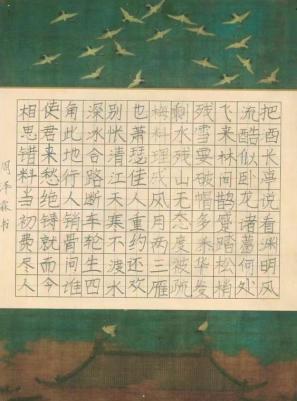 把酒长亭说看渊明风
流酷似卧龙诸葛何处
飞来林间鹊蹙踏松梢
残雪要破帽多添华发
剩水残山无态度被疏
梅料理成风月两三雁
也萧瑟佳人重约还轻
别怅清江天寒不渡水
深冰合路断车轮生四
角此地行人销骨问谁
使君来愁绝铸就而今
相思错料当初费尽人